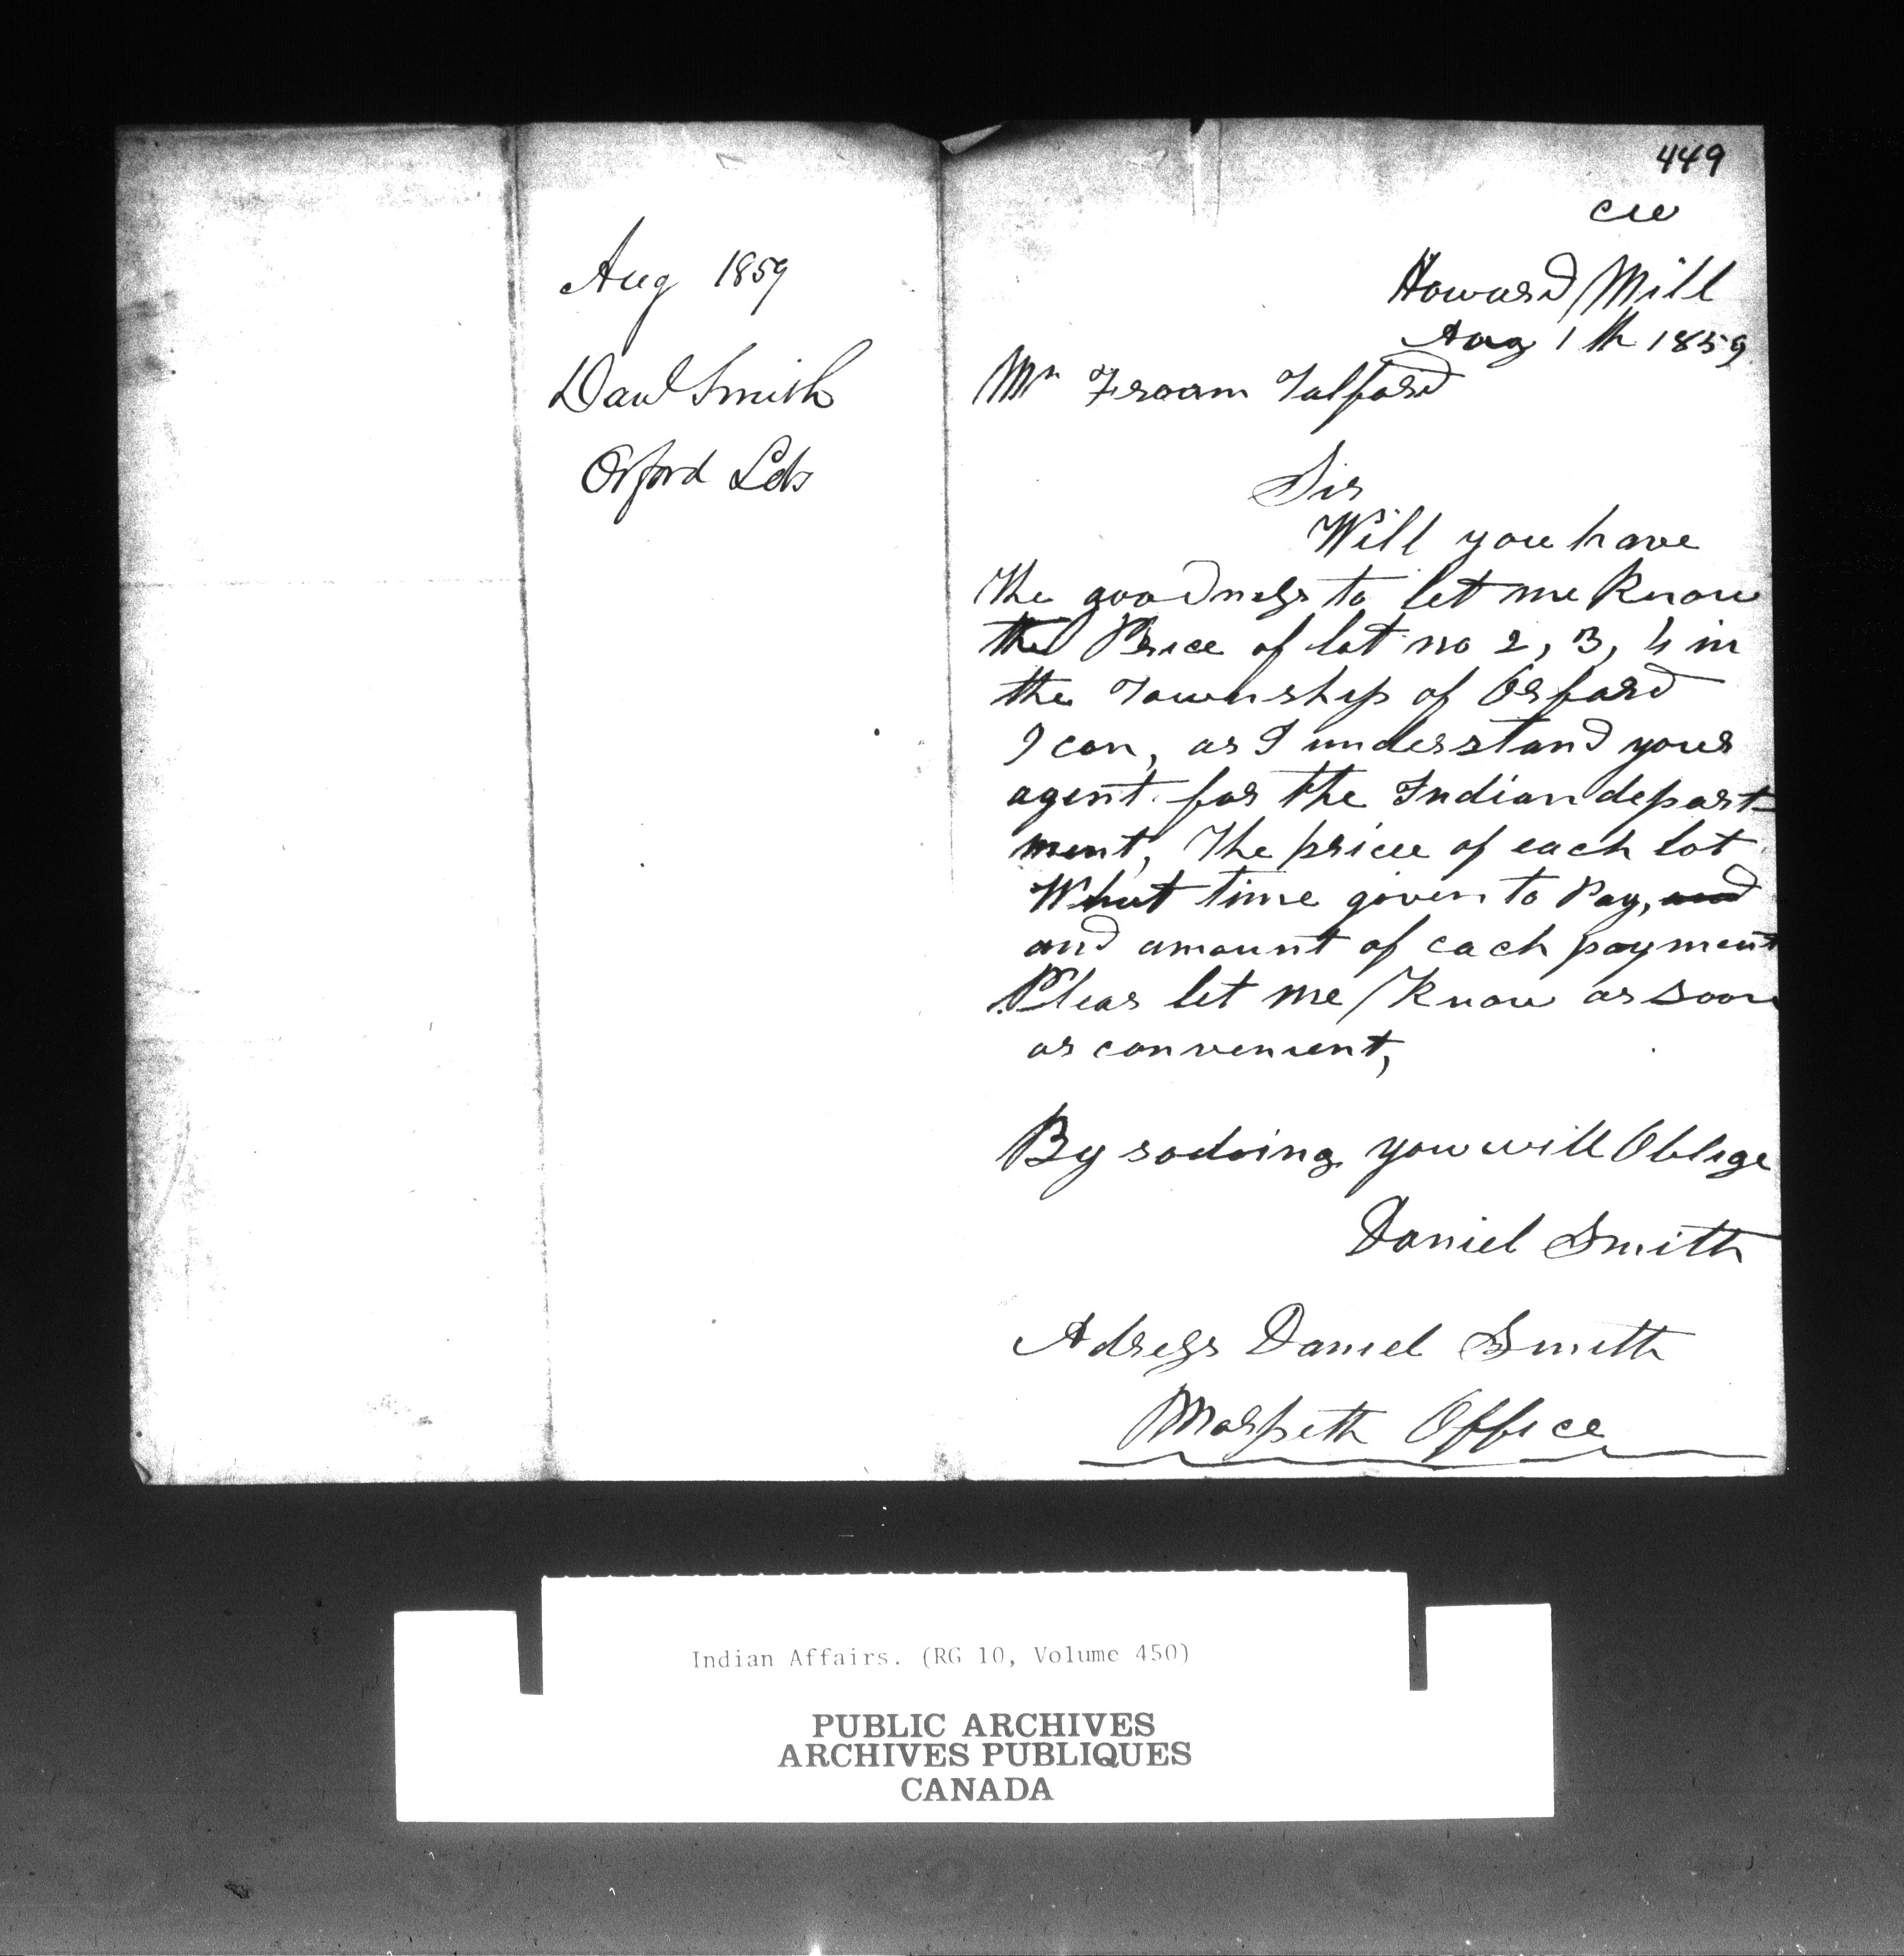 Aug 1859
Danl Smith
Orford Lds
449
CW
Howard Mill
Aug 1th 1859
Mr Froom Talford
Sir
Will you have
the goodness to let me know
the Price of lot no 2, 3, 4 in
the Township of Orford
I con, as I understand your
agent for the Indian depart-
ment, The pricee of each lot
What time given to Pay, and
and amount of each payment
Pleas let me know as soon
as convenient,
By sodoing you will Oblige
Daniel Smith
Adress Daniel Smith
Morpeth Office
Indian Affairs. (RG 10, Volume 450)
PUBLIC ARCHIVES
ARCHIVES PUBLIQUES
CANADA